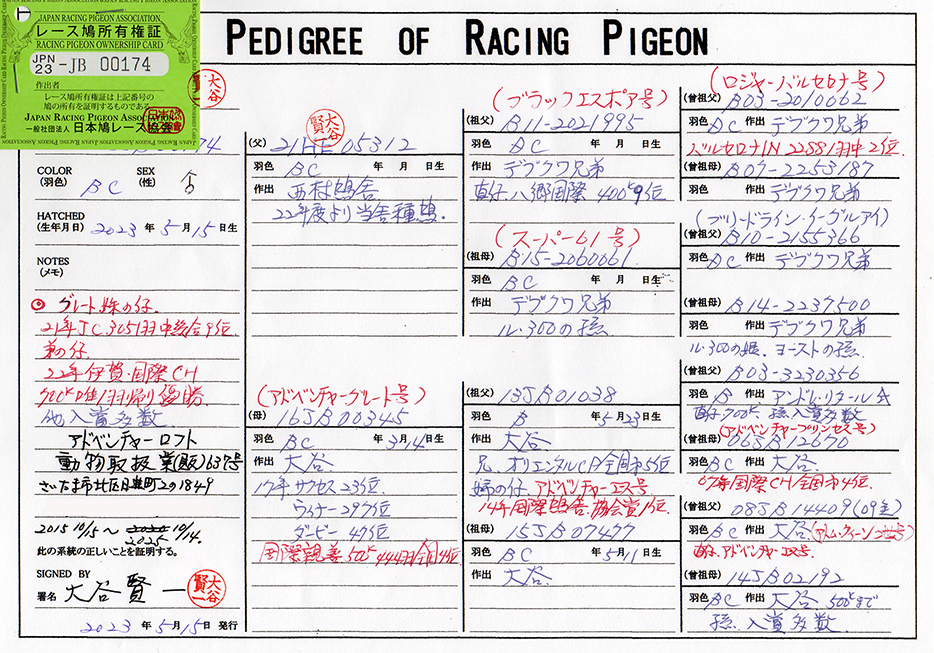 JAPAN RACING PIGEON ASSOCIATION
レース鳩所有権証
RACING PIGEON OWNERSHIP CARD
JPN
23 -JB 00174
作出者
レース鳩所有権証は上記番号の
鳩の所有を証明するものである。
JAPAN RACING PIGEON ASSOCIATION
一般社団法人 日本鳩レース協会
PEDIGREE OF RACING PIGEON
COLOR
(羽色) BC
SEX
(性) 合
HATCHED
(生年月日) 2023 年 5 月 15 日 生
NOTES
(メモ)
◎ グレート姉の仔.
21年JC 3051羽中総合9位
弟の仔.
22年伊賀・国際CH
700K唯一羽帰り優勝
他入賞多数
アドベンチャーロフト
動物取扱業(販)637号
さいたま市北区日進町2の1849
2015 10/15〜 2025 10/14.
此の系統の正しいことを証明する。
SIGNED BY
署名 大谷賢一
大谷賢一
2023 年 5 月 15 日 発行
大谷賢一
(父) 21HE05312
羽色 BC 年 月 日生
作出 西村鳩舎
22年度より当舎種鳩.
(アドベンチャーグレート号)
(母) 16JB00345
羽色 BC 年 3月14日生
作出 大谷
17年サクセス23位.
ウィナー297位
ダービー 49位
国際親善500K 444羽全国4位
(ブラックエスポア号)
(祖父) B11-2021995
羽色 BC 年 月 日生
作出 デブクワ兄弟
直仔 八郷国際 400K9位
(スーパー61号)
(祖母) B15-2060061
羽色 BC 年 月 日生
作出 デブクワ兄弟
ル・300の孫
(祖父) 13JB01038
羽色 B 年 5月23日生
作出 大谷
兄. オリエンタルCP全国5位
姉の仔. アドベンチャーエース号
14年国際鳩舎. 協会賞1位.
(祖母) 15JB07477
羽色 BC 年 5月11日生
作出 大谷
(ロジャーバルセロナ号)
(曽祖父) B03-2010062
羽色 BC 作出 デブクワ兄弟
バルセロナIN 22881羽中2位.
(曽祖母) B07-2253187
羽色 作出 デブクワ兄弟
(ブリードライン・イーグルアイ)
(曽祖父) B10-2155366
羽色 BC 作出 デブクワ兄弟
(曽祖母) B14-2237500
羽色 作出 デブクワ兄弟
ル・300の姫. ヨーストの孫.
(曽祖父) B03-3230356
羽色 B 作出 アンドレ・リクール
直仔700K. 孫入賞多数
(アドベンチャープリンセス号)
(曽祖母) 06JB12670
羽色 BC 作出 大谷.
07年国際CH全国4位.
(曽祖父) 08JB14409
羽色 BC 作出 大谷
直仔. アドベンチャーエース号.
(曽祖母) 14JB02192
羽色 BC 作出 大谷 500Kまで
孫. 入賞多数.